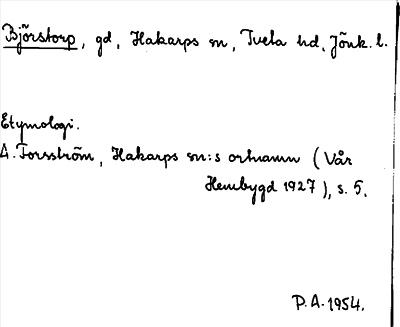 Björstorp, gd, Hakarps sn, Tveta hd, Jönk. l.
Etymologi.
A. Forsström, Hakarps sn:s ortnamn (Vår
Hembygd 1927), s. 5.
P. A. 1954.